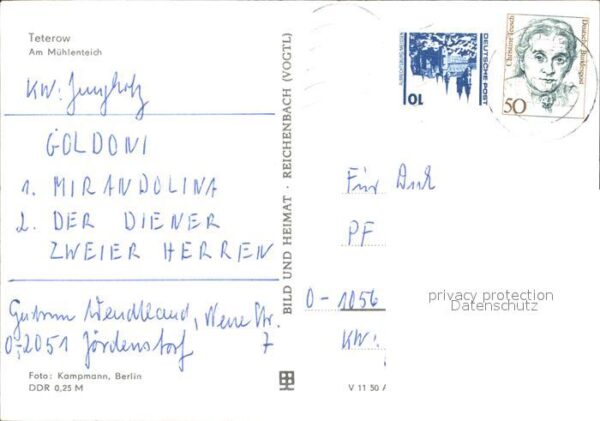 Teterow
Am Mühlenteich
KW: Jungholz
GOLDONI
1. MIRANDOLINA
2. DER DIENER
ZWEIER HERREN
Gudrun Wendland, Neue Str.
0-2051 Jördenstorf 7
Foto: Kampmann, Berlin
DDR 0,25 M
BILD UND HEIMAT · REICHENBACH (VOGTL)
DEUTSCHE POST
10
Christine Teusch
Deutsche Bundespost
50
Für Dich
PF
0-1056
KW:
privacy protection
Datenschutz
V 11 50 A